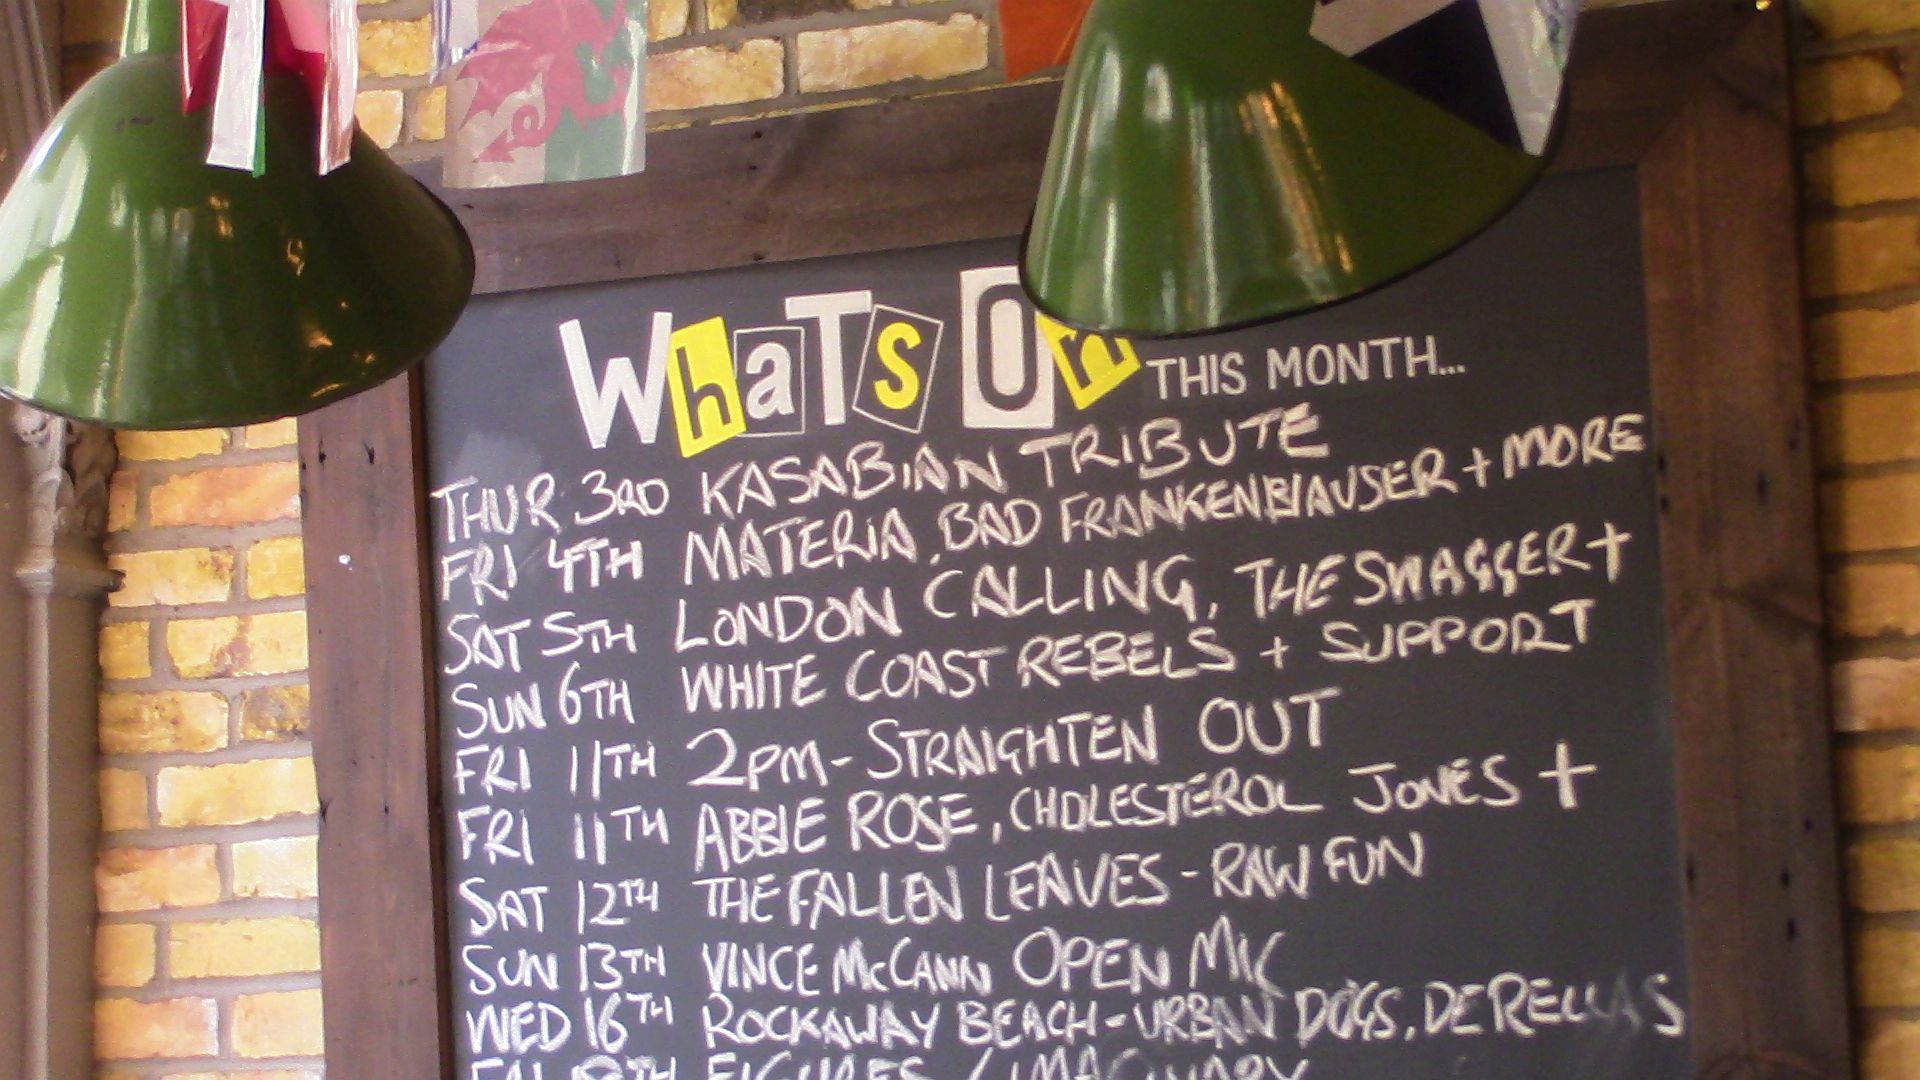 WhaTs On THIS MONTH...
THUR 3RD KASABIAN TRIBUTE
FRI 4TH MATERIA, BAD FRANKENBLAUSER + MORE
SAT 5TH LONDON CALLING, THE SWAGGER +
SUN 6TH WHITE COAST REBELS + SUPPORT
FRI 11TH 2PM - STRAIGHTEN OUT
FRI 11TH ABBIE ROSE, CHOLESTEROL JONES +
SAT 12TH THE FALLEN LEAVES - RAW FUN
SUN 13TH VINCE McCANN OPEN MIC
WED 16TH ROCKAWAY BEACH - URBAN DOGS, DE RELLAS
FIGURES / IMAGINARY